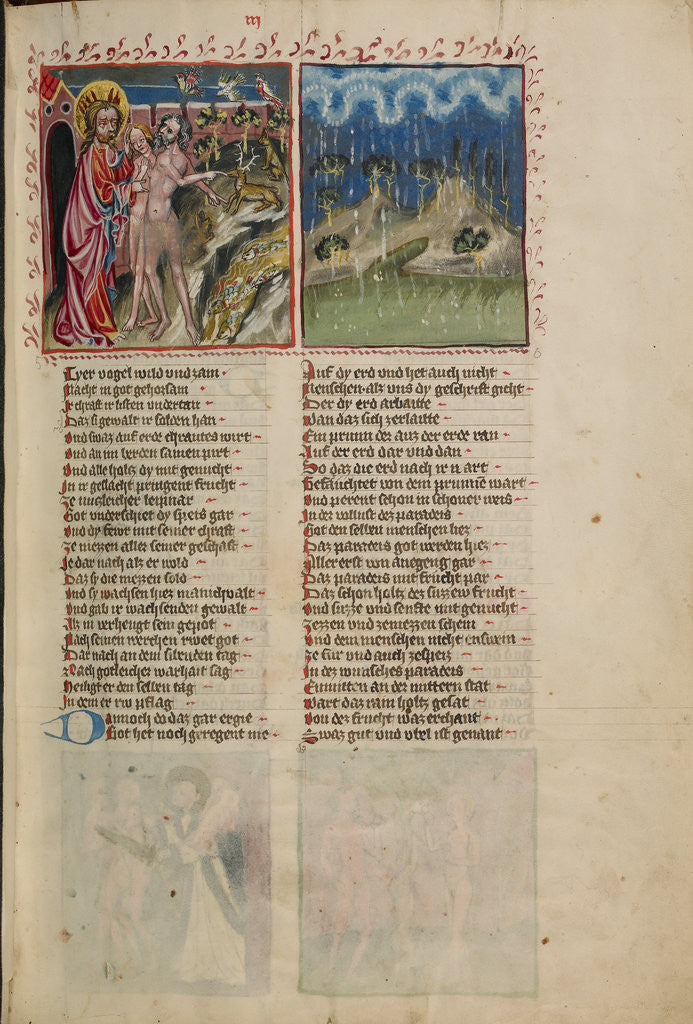 iij
Tyer vogel wild vnd zam
Macht in got gehorsam
Ir chraft ir listen vndertan
Daz si gewalt ir solden han
Vnd swaz auf erde chrautes wirt
Vnd an im berden samen pirt
Vnd alle holtz dy mit genucht
In ir geslacht pringent frucht
Ze mugleicher leipnar
Got vnderschiet dy speis gar
Vnd dy fewr mit seiner chraft
Ze niezzen aller seiner geschaft
Ie dar nach als er wold
Daz sy die niezzen sold
Vnd sy wachsen hiez manichualt
Vnd gab ir wachsenden gewalt
Als in verhengt sein gepot
Nach seinen werchen rwet got
Dar nach an dem sibenden tag
Nach gotleicher warhait sag
Heiligt er den selben tag
In dem er rw pflag
Dannoch do daz gar ergie
Got het noch geregent nie
Auf dy erd vnd het auch nicht
Menschen als vns dy geschrift gicht
Der dy erd arbaitte
Wan daz sich zerlaitte
Ein prunn der auz der erde ran
Auf der erd dar vnd dan
So daz die erd nach ir n art
Gefeuchtet von dem prunne wart
Vnd perent schon in schoner weis
In der vollust des paradeis
Got den selben menschen liez
Daz paradeis got werden hiez
Aller erst von anegeng gar
Daz paradeis mit frucht par
Daz schon holtz der suzzew frucht
Vnd suzze vnd senfte mit genucht
Zezzen vnd zeniezzen schein
Vnd dem menschen nicht enswein
Ze sur vnd auch zespeis
In des wunsches paradeis
Enmitten an der mittern stat
Wart daz ram holtz gesat
Von der frucht waz erchant
Swaz gut vnd vbel ist genant